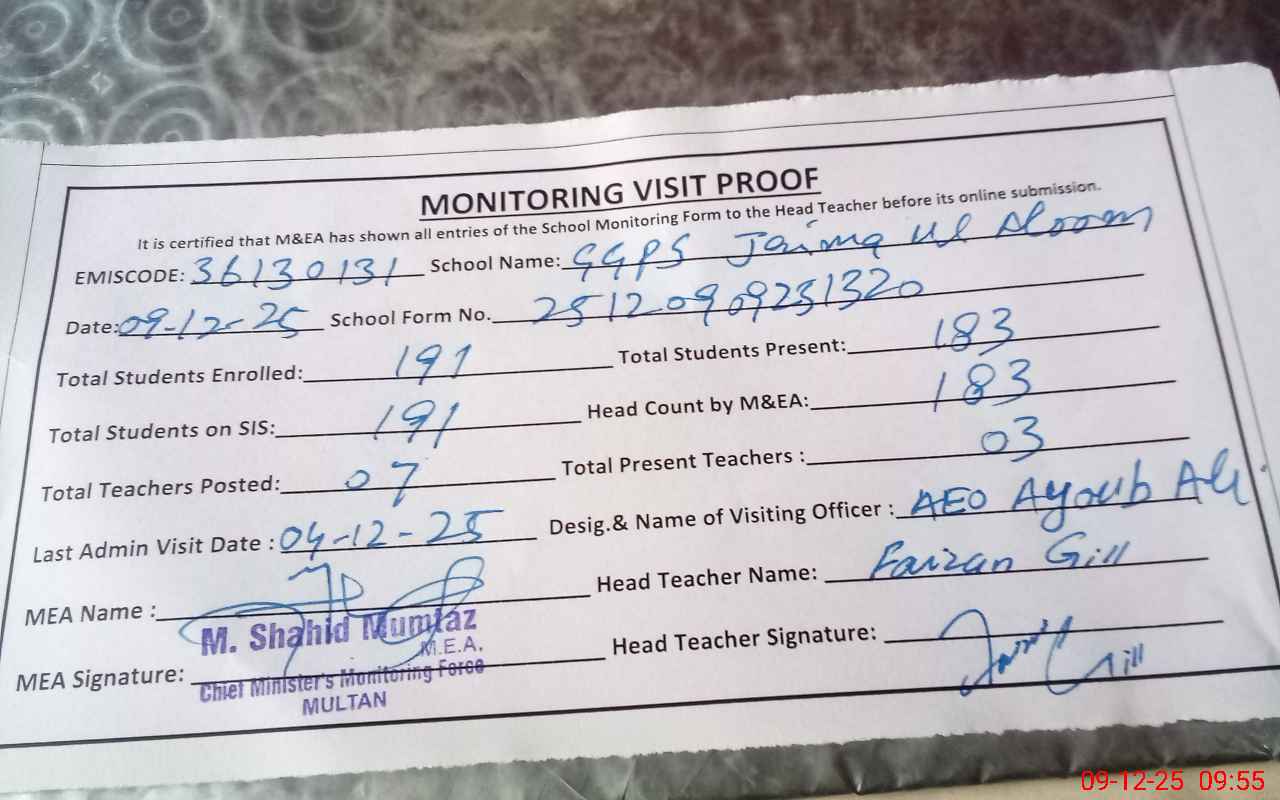 MONITORING VISIT PROOF
It is certified that M&EA has shown all entries of the School Monitoring Form to the Head Teacher before its online submission.
EMISCODE: 36130131 School Name: GGPS Jaima ul Aloom
Date: 09-12-25 School Form No. 25120909231320
Total Students Enrolled: 191 Total Students Present: 183
Total Students on SIS: 191 Head Count by M&EA: 183
Total Teachers Posted: 07 Total Present Teachers : 03
Last Admin Visit Date : 04-12-25 Desig.& Name of Visiting Officer : AEO Ayoub Ali
MEA Name : Head Teacher Name: Faizan Gill
M. Shahid Mumtaz
M.E.A.
MEA Signature: Head Teacher Signature:
Chief Minister's Monitoring Force
MULTAN
09-12-25 09:55